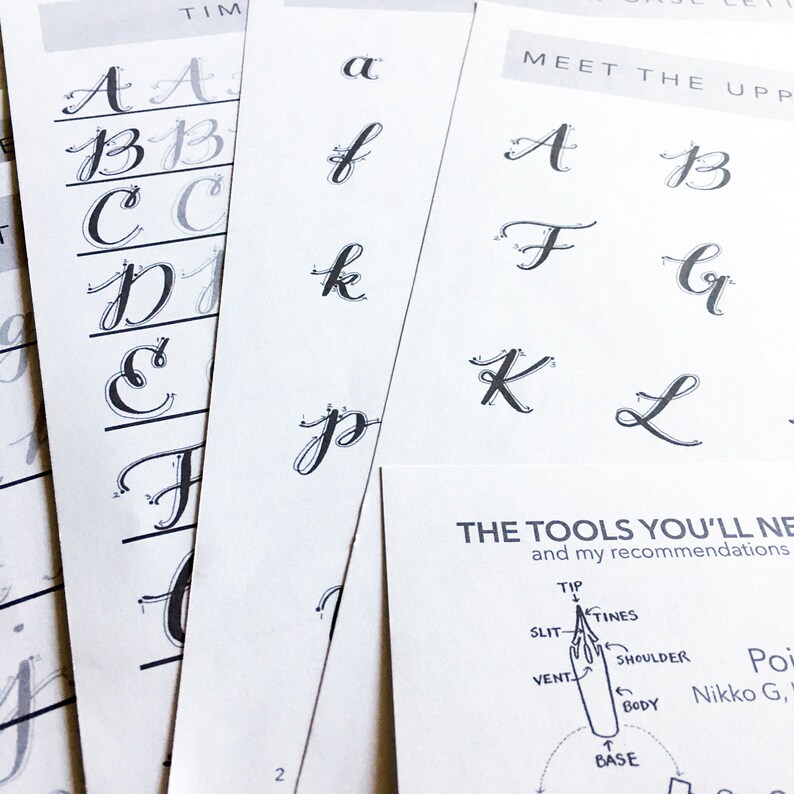 TIM
A A
B B
C C
D
E
F
a
f
k
p
2
CASE LETT
MEET THE UPP
A B
F G
K L
THE TOOLS YOU'LL NE
and my recommendations
TIP
TINES
SLIT
SHOULDER
VENT
BODY
BASE
Poi
Nikko G,